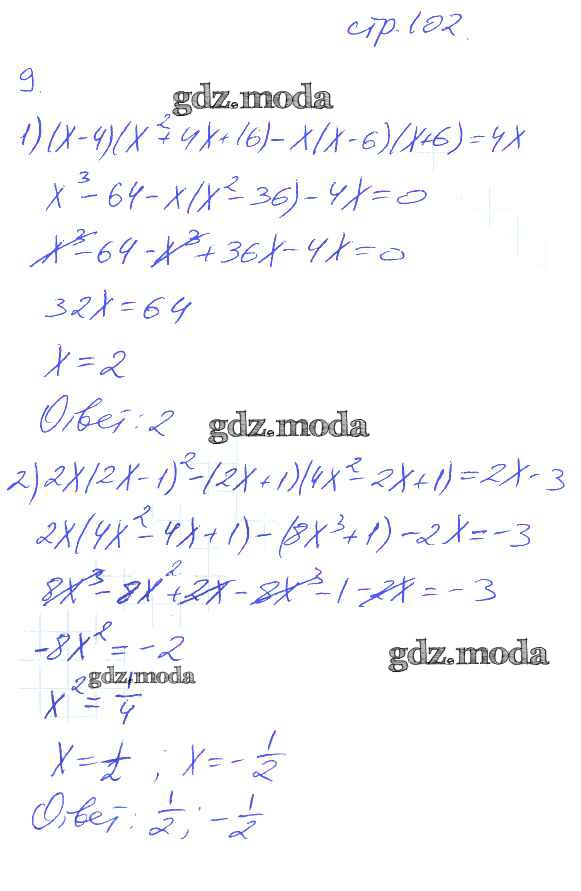 стр. 102.
9.
gdz.moda
1) (x-4)(x²+4x+16)-x(x-6)(x+6)=4x
x³-64-x(x²-36)-4x=0
x³-64-x³+36x-4x=0
32x=64
x=2
Ответ: 2
gdz.moda
2) 2x(2x-1)²-(2x+1)(4x²-2x+1)=2x-3
2x(4x²-4x+1)-(8x³+1)-2x=-3
8x³-8x²+2x-8x³-1-2x=-3
-8x²=-2
gdz.moda
gdz.moda
x²=1/4
x=1/2 ; x=-1/2
Ответ: 1/2; -1/2